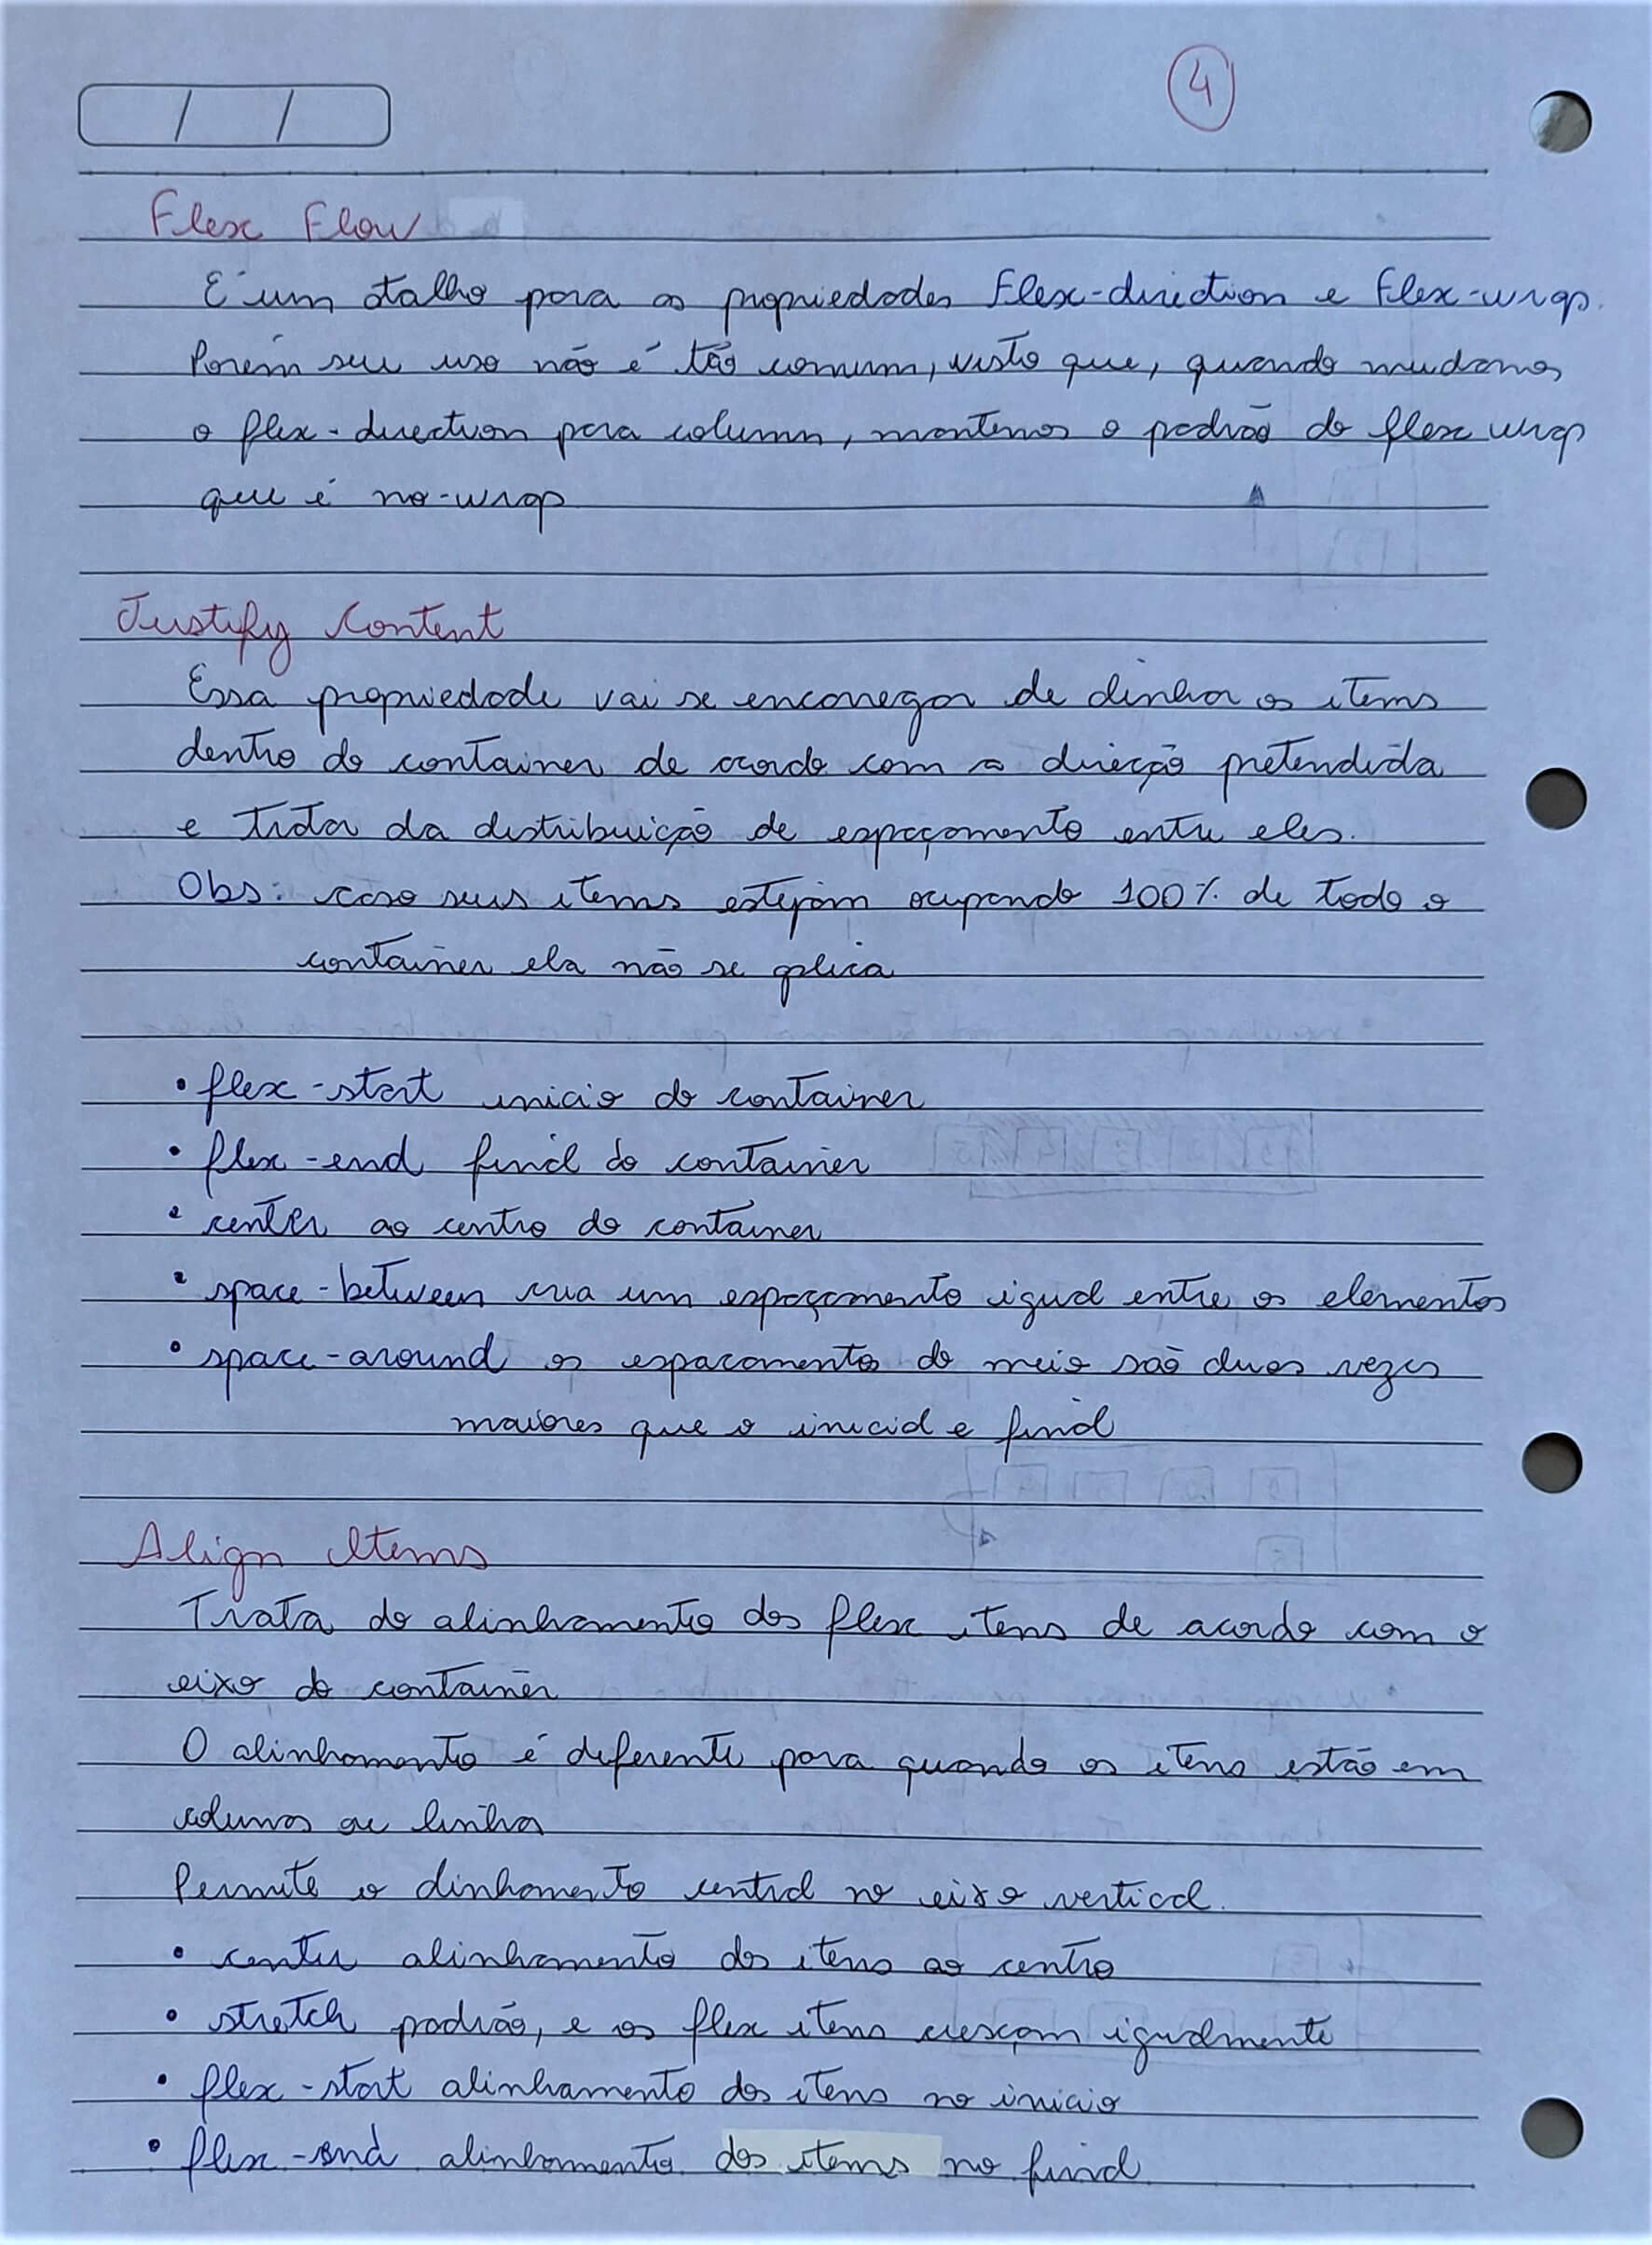 4
/ /
Flex Flow
É um atalho para as propriedades Flex-direction e Flex-wrap.
Porém seu uso não é tão comum, visto que, quando mudamos
o flex-direction para column, mantemos o padrão do flex wrap
que é no-wrap
Justify Content
Essa propriedade vai se encarregar de alinhar os items
dentro do container de acordo com a direção pretendida
e tratar da distribuição de espaçamento entre eles.
Obs: caso seus items estejam ocupando 100% de todo o
container ela não se aplica
• flex-start inicio do container
• flex-end final do container
• center ao centro do container
• space-between cria um espaçamento igual entre os elementos
• space-around os espacamentos do meio são duas vezes
maiores que o inicial e final
Align Items
Trata do alinhamento dos flex itens de acordo com o
eixo do container
O alinhamento é diferente para quando os itens estão em
colunas ou linha
Permite o alinhamento central no eixo vertical.
• center alinhamento dos itens ao centro
• stretch padrão, e os flex itens cresçam igualmente
• flex-start alinhamento dos itens no inicio
• flex-end alinhamento dos items no final